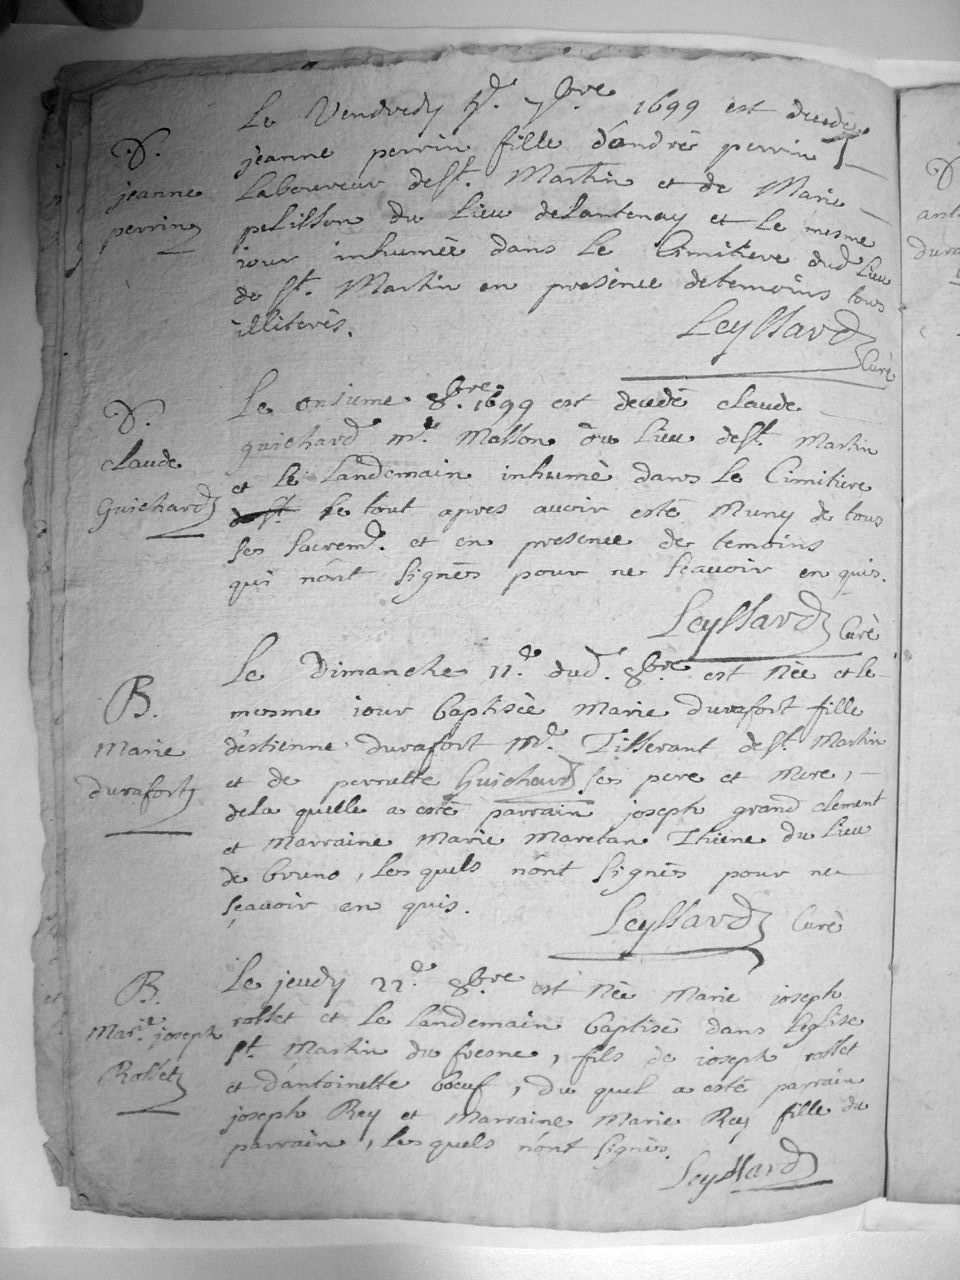 Le Vendredy 4e. 7bre 1699 est decedée
D.
jeanne
perrin
jeanne perrin fille d'andrè perrin
Laboureur de St. Martin et de Marie
pelisson du Lieu de Lantenay et Le mesme
iour inhumèe dans Le Cimitiere dud. Lieu
de St. Martin en presence de temoins tous
illiterès.
Leyssard Curè
Le onsieme 8bre. 1699 est decedè claude
D.
claude
Guichard
guichard me. Masson du Lieu de St. Martin
et le Landemain inhumè dans Le Cimitiere
de St. Le tout apres avoir estè Muny de tous
ses sacremt. et en presence de temoins
qui n'ont signès pour ne sçavoir enquis.
Leyssard Curè
Le Dimanche 11e. dud. 8bre est Nèe et le
B.
Marie
durafort
mesme iour baptisèe Marie durafort fille
d'estienne durafort Me. Tisserant de St. Martin
et de perrette Guichard ses pere et Mere,
de la quelle a estè parrain joseph grand clement
et Marraine Marie Maretan Thiene du Lieu
de bruno, Lesquels n'ont signès pour ne
sçavoir enquis.
Leyssard Curè
Le jeudy 22e. 8bre est Nèe Marie joseph
B.
Marie joseph
Rosset
rosset et Le Landemain baptisè dans L'eglise
St. Martin du fresne, fils de joseph rosset
et d'antoinette boeuf, du quel a estè parrain
joseph Rey et Marraine Marie Rey fille du
parrain, Lesquels n'ont signès.
Leyssard
D